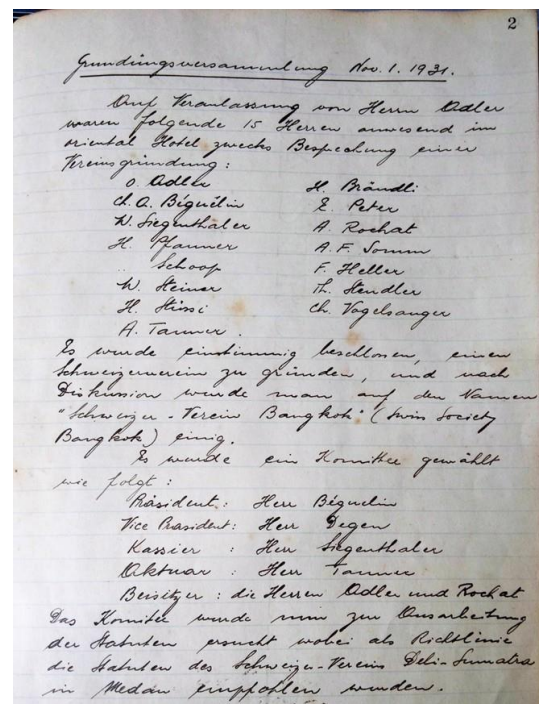 2
Gründungsversammlung Nov. 1. 1931.
Auf Veranlassung von Herrn Adler
waren folgende 15 Herren anwesend im
oriental Hotel zwecks Bespechung einer
Vereinsgründung:
O. Adler H. Brändli
Ch. A. Béguelin E. Peter
W. Siegenthaler A. Rochat
H. Pfanner A. F. Somm
.. Schoop F. Heller
W. Steiner Th. Stendler
H. Stüssi Ch. Vogelsanger
A. Tanner.
Es wurde einstimmig beschlossen, einen
Schweizerverein zu gründen, und nach
Diskussion wurde man auf den Namen
"Schweizer-Verein Bangkok" (Swiss Society
Bangkok) einig.
Es wurde ein Komitee gewählt
wie folgt:
Präsident: Herr Béguelin
Vice Präsident: Herr Degen
Kassier : Herr Siegenthaler
Aktuar : Herr Tanner
Beisitzer : die Herren Adler und Rochat
Das Komitee wurde nun zur Ausarbeitung
der Statuten ersucht wobei als Richtlinie
die Statuten des Schweizer-Vereins Deli-Sumatra
in Medan empfohlen wurden.